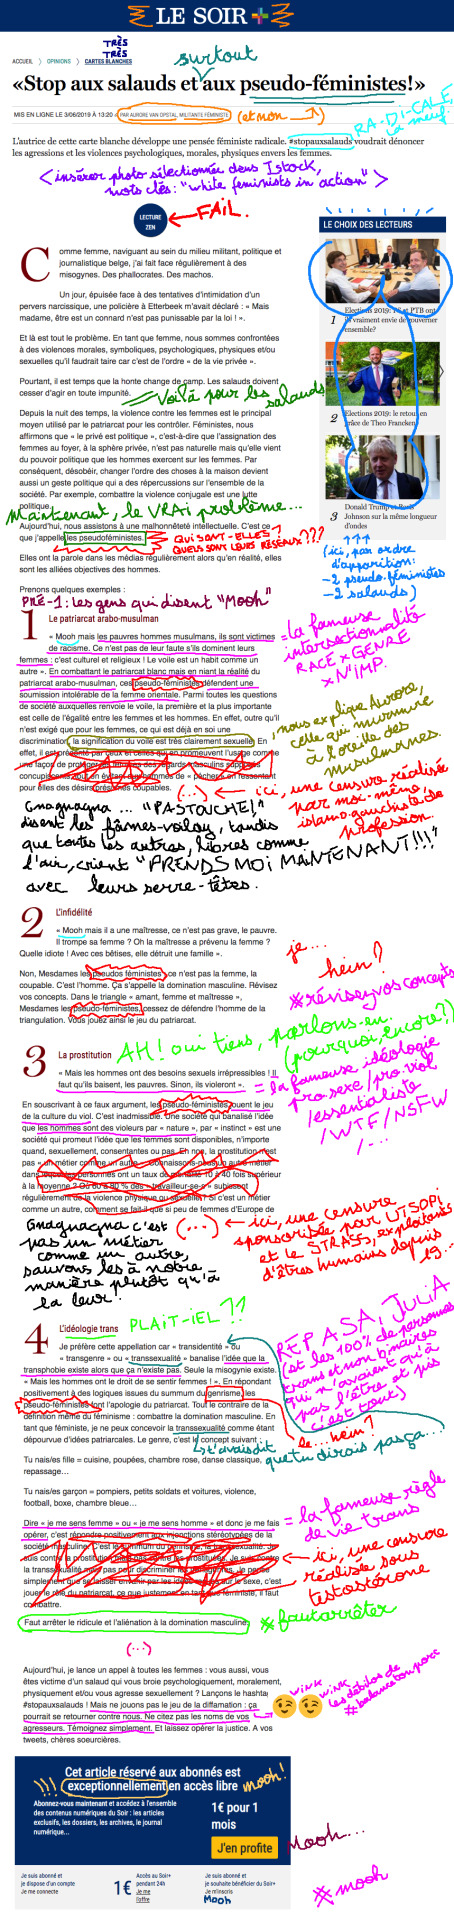 LE SOIR +
TRÈS
TRÈS
surtout
ACCUEIL > OPINIONS > CARTES BLANCHES
«Stop aux salauds et aux pseudo-féministes!»
MIS EN LIGNE LE 3/06/2019 À 13:20
PAR AURORE VAN OPSTAL, MILITANTE FÉMINISTE
(et non →)
RA-DI-CALE,
L'autrice de cette carte blanche développe une pensée féministe radicale. #stopauxsalauds voudrait dénoncer
les agressions et les violences psychologiques, morales, physiques envers les femmes.
<insérer photo sélectionnée dans Istock,
mots clés: "white feminists in action">
LECTURE
ZEN
← FAIL.
LE CHOIX DES LECTEURS
Comme femme, naviguant au sein du milieu militant, politique et
journalistique belge, j'ai fait face régulièrement à des
misogynes. Des phallocrates. Des machos.
Un jour, épuisée face à des tentatives d'intimidation d'un
pervers narcissique, une policière à Etterbeek m'avait déclaré : « Mais
madame, être est un connard n'est pas punissable par la loi ! ».
1 Elections 2019: PS et PTB ont
ils vraiment envie de gouverner
ensemble?
Et là est tout le problème. En tant que femme, nous sommes confrontées
à des violences morales, symboliques, psychologiques, physiques et/ou
sexuelles qu'il faudrait taire car c'est de l'ordre « de la vie privée ».
Pourtant, il est temps que la honte change de camp. Les salauds doivent
cesser d'agir en toute impunité.
Voilà pour les salauds
2 Elections 2019: le retour en
grâce de Theo Francken
Depuis la nuit des temps, la violence contre les femmes est le principal
moyen utilisé par le patriarcat pour les contrôler. Féministes, nous
affirmons que « le privé est politique », c'est-à-dire que l'assignation des
femmes au foyer, à la sphère privée, n'est pas naturelle mais qu'elle vient
du pouvoir politique que les hommes exercent sur les femmes. Par
conséquent, désobéir, changer l'ordre des choses à la maison devient
aussi un geste politique qui a des répercussions sur l'ensemble de la
société. Par exemple, combattre la violence conjugale est une lutte
politique.
3 Donald Trump et Boris
Johnson sur la même longueur
d'ondes
Maintenant, le VRAI problème...
Aujourd'hui, nous assistons à une malhonnêteté intellectuelle. C'est ce
que j'appelle les pseudoféministes.
QUI SONT-ELLES?
QUELS SONT LEURS RÉSEAUX???
Elles ont la parole dans les médias régulièrement alors qu'en réalité, elles
sont les alliées objectives des hommes.
↑↑↑
(ici, par ordre
d'apparition:
-2 pseudo-féministes
-2 salauds)
Prenons quelques exemples :
PRÉ-1: les gens qui disent "Mooh"
1 Le patriarcat arabo-musulman
« Mooh mais les pauvres hommes musulmans, ils sont victimes
de racisme. Ce n'est pas de leur faute s'ils dominent leurs
femmes : c'est culturel et religieux ! Le voile est un habit comme un
autre ». En combattant le patriarcat blanc mais en niant la réalité du
patriarcat arabo-musulman, ces pseudo-féministes défendent une
soumission intolérable de la femme orientale. Parmi toutes les questions
de société auxquelles renvoie le voile, la première et la plus importante
est celle de l'égalité entre les femmes et les hommes. En effet, outre qu'il
n'est exigé que pour les femmes, ce qui est déjà en soi une
discrimination, la signification du voile est très clairement sexuelle. En
effet, il est présenté par ceux et celles qui en promeuvent l'usage comme
une façon de protéger les femmes des regards masculins supposés
concupiscents, tout en évitant aux hommes de « pécher » en ressentant
pour elles des désirs présumés coupables.
= la fameuse
intersectionnalité
RACE x GENRE
x N'IMP.
, nous explique Aurore,
celle qui murmure
à l'oreille des
musulmanes.
(...) ← ici, une censure réalisée
par moi-même,
islamo-gauchiste de
profession.
Gnagnagna... "PASTOUCHE!"
disent les fâmes-voilay, tandis
que toutes les autres, libres comme
l'air, crient "PRENDS MOI MAINTENANT!!!"
avec leurs serre-têtes.
2 L'infidélité
« Mooh mais il a une maîtresse, ce n'est pas grave, le pauvre.
Il trompe sa femme ? Oh la maîtresse a prévenu la femme ?
Quelle idiote ! Avec ces bêtises, elle détruit une famille ».
je...
hein?
Non, Mesdames les pseudos féministes, ce n'est pas la femme, la
coupable. C'est l'homme. Ça s'appelle la domination masculine. Révisez
vos concepts. Dans le triangle « amant, femme et maîtresse »,
Mesdames les pseudo-féministes, cessez de défendre l'homme de la
triangulation. Vous jouez ainsi le jeu du patriarcat.
#révisezvosconcepts
AH! oui tiens, parlons-en.
(pourquoi, encore?)
3 La prostitution
« Mais les hommes ont des besoins sexuels irrépressibles ! Il
faut qu'ils baisent, les pauvres. Sinon, ils violeront ».
= la fameuse idéologie
pro sexe/pro viol
/essentialiste
/WTF/NSFW
/...
En souscrivant à ce faux argument, les pseudo-féministes jouent le jeu
de la culture du viol. C'est inadmissible. Une société qui banalise l'idée
que les hommes sont des violeurs par « nature », par « instinct » est une
société qui promeut l'idée que les femmes sont disponibles, n'importe
quand, sexuellement, consentantes ou pas. Eh non, la prostitution n'est
pas « un métier comme un autre ». Connaissons-nous un autre métier
dans lequel les personnes ont un taux de mortalité 10 à 40 fois supérieur
à la moyenne ? Où 60 à 80 % des « travailleur-se-s » subissent
régulièrement de la violence physique ou sexuelle ? Si c'est un métier
comme un autre, comment se fait-il que si peu de femmes d'Europe de
(...) ← ici, une censure
sponsorisée par UTSOPI
et le STRASS, exploitants
d'êtres humains depuis
19...
Gnagnagna c'est
pas un métier
comme un autre,
sauvons les à notre
manière plutôt qu'à
la leur.
4 L'idéologie trans
PLAIT-IEL?!
Je préfère cette appellation car « transidentité » ou
« transgenre » ou « transsexualité » banalise l'idée que la
transphobie existe alors que ça n'existe pas. Seule la misogynie existe.
« Mais les hommes ont le droit de se sentir femmes ! ». En répondant
positivement à des logiques issues du summum du genrisme, les
pseudo-féministes font l'apologie du patriarcat. Tout le contraire de la
définition même du féminisme : combattre la domination masculine. En
tant que féministe, je ne peux concevoir la transsexualité comme étant
dépourvue d'idées patriarcales. Le genre, c'est le concept suivant :
REPASA, JULIA
(et les 100% de personnes
trans et non binaires
qui n'avaient qu'à
pas l'être et pis
c'est tout)
le... hein?
t'avais dit que tu dirais pas ça...
Tu nais/es fille = cuisine, poupées, chambre rose, danse classique,
repassage…
Tu nais/es garçon = pompiers, petits soldats et voitures, violence,
football, boxe, chambre bleue…
Dire « je me sens femme » ou « je me sens homme » et donc je me fais
opérer, c'est répondre positivement aux injonctions stéréotypées de la
société masculine. C'est le summum du genrisme, la transsexualité. Je
suis contre la prostitution mais pas contre les prostituées. Je suis contre
la transsexualité mais pas pour discriminer les personnes. Je pense
= la fameuse règle
de vie trans
← ici, une censure
réalisée sous
testostérone
combattre.
Faut arrêter le ridicule et l'aliénation à la domination masculine.
#fautarrêter
(...)
Aujourd'hui, je lance un appel à toutes les femmes : vous aussi, vous
êtes victime d'un salaud qui vous broie psychologiquement, moralement,
physiquement et/ou vous agresse sexuellement ? Lançons le hashtag
#stopauxsalauds ! Mais ne jouons pas le jeu de la diffamation : ça
pourrait se retourner contre nous. Ne citez pas les noms de vos
agresseurs. Témoignez simplement. Et laissez opérer la justice. A vos
tweets, chères soeurcières.
wink wink
les débilos de
#balancetonporc
Cet article réservé aux abonnés est
exceptionnellement en accès libre
mooh!
Abonnez-vous maintenant et accédez à l'ensemble
des contenus numériques du Soir : les articles
exclusifs, les dossiers, les archives, le journal
numérique...
1€ pour 1
mois
J'en profite
Mooh...
Je suis abonné et
je dispose d'un compte
Je me connecte
1€
Accès au Soir+
pendant 24h
Je me
l'offre
Je suis abonné et
je souhaite bénéficier du Soir+
Je m'inscris
Mooh
#mooh